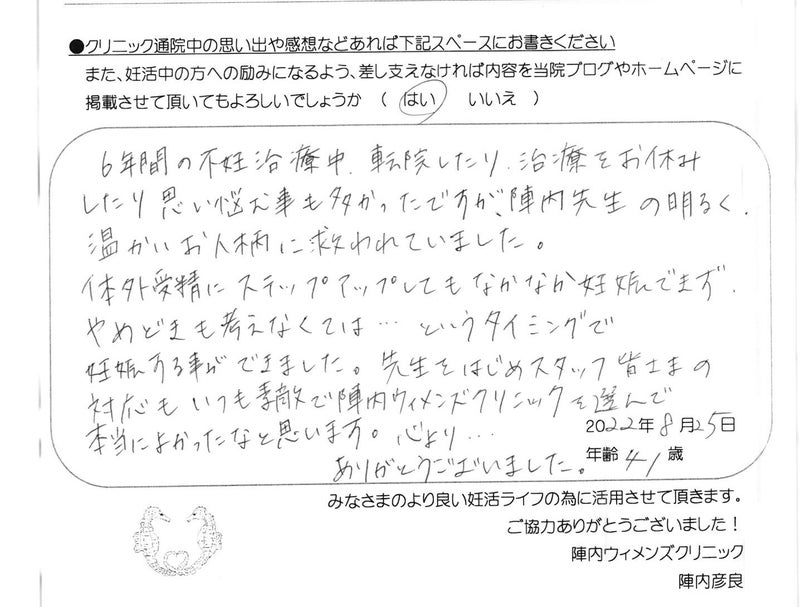 ●クリニック通院中の思い出や感想などあれば下記スペースにお書きください
また、妊活中の方への励みになるよう、差し支えなければ内容を当院ブログやホームページに
掲載させて頂いてもよろしいでしょうか （ はい　いいえ ）
6年間の不妊治療中、転院したり、治療をお休み
したり思い悩む事も多かったですが、陣内先生の明るく、
温かいお人柄に救われていました。
体外受精にステップアップしてもなかなか妊娠できず、
やめどきも考えなくては… というタイミングで
妊娠する事ができました。先生をはじめスタッフ皆さまの
対応もいつも素敵で陣内ウィメンズクリニックを選んで
本当によかったなと思います。心より…
ありがとうございました。
2022年8月25日
年齢 41 歳
みなさまのより良い妊活ライフの為に活用させて頂きます。
ご協力ありがとうございました！
陣内ウィメンズクリニック
陣内彦良